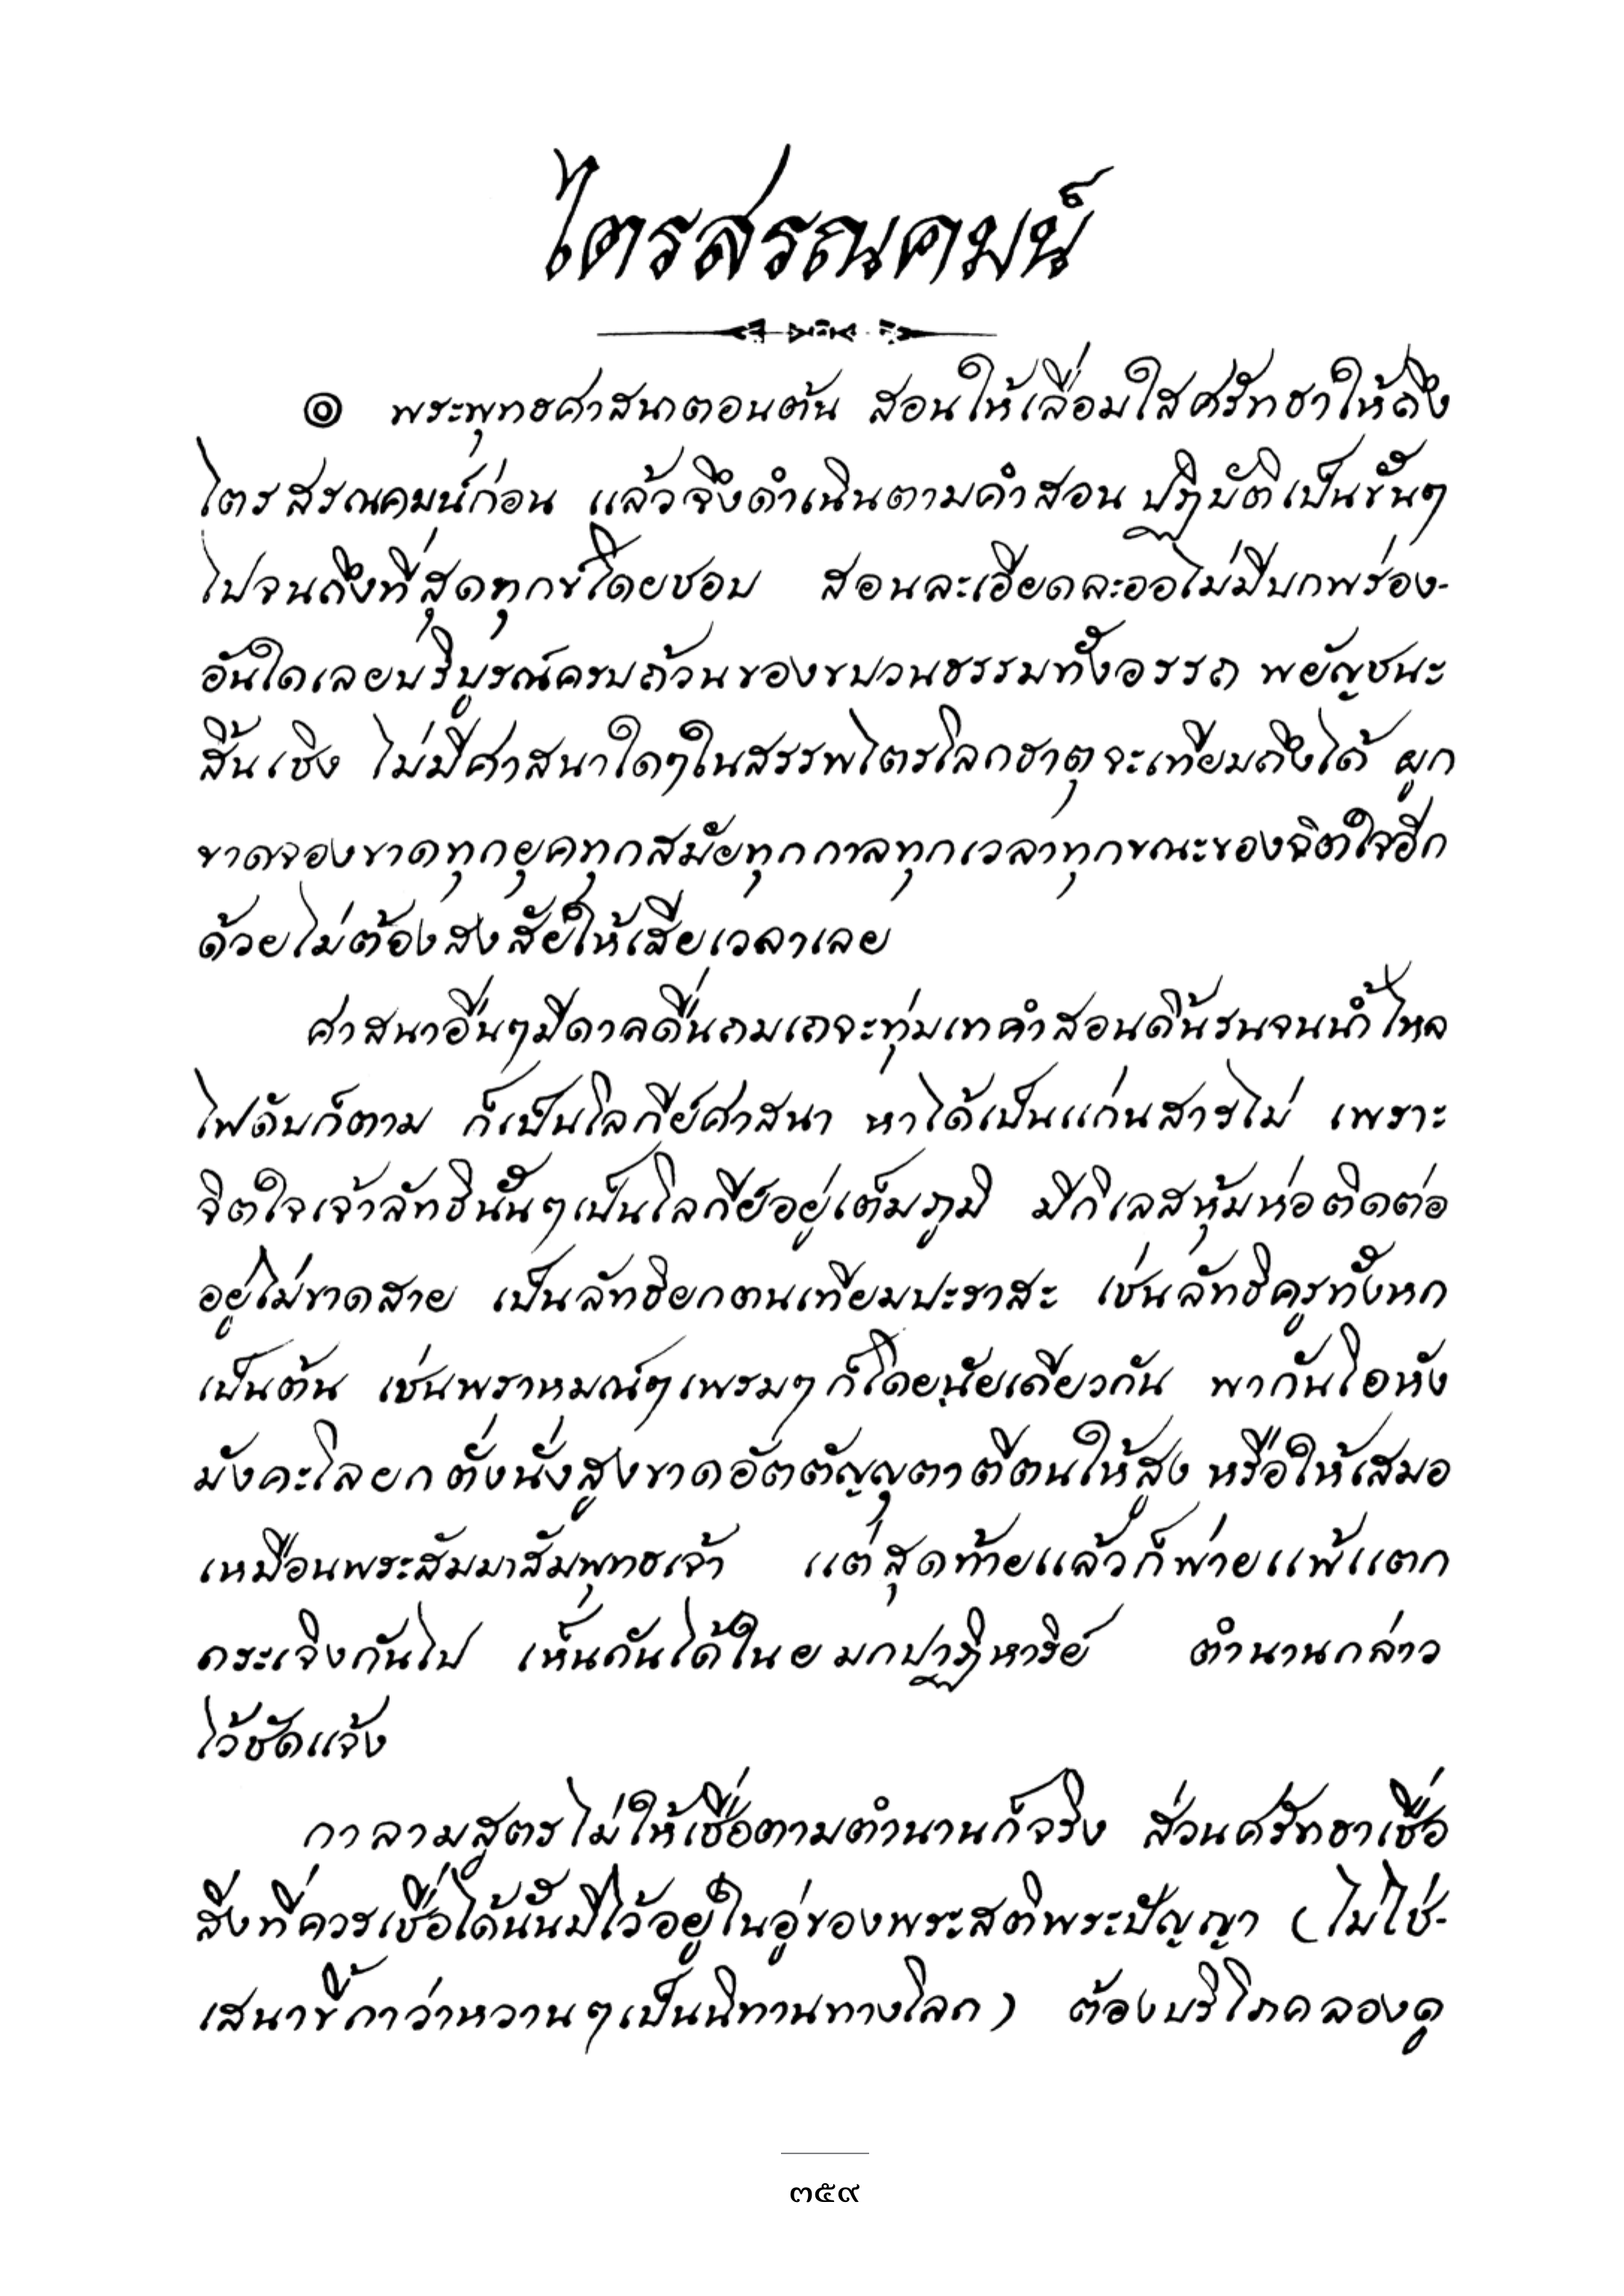 ไตรสรณคมน์
๏ พระพุทธศาสนาตอนต้น สอนให้เลื่อมใสศรัทธาให้ถึง
ไตรสรณคมน์ก่อน แล้วจึงดำเนินตามคำสอน ปฏิบัติเป็นขั้นๆ
ไปจนถึงที่สุดทุกข์โดยชอบ สอนละเอียดละออไม่มีบกพร่อง-
อันใดเลยบริบูรณ์ครบถ้วนของขบวนธรรมทั้งอรรถ พยัญชนะ
สิ้นเชิง ไม่มีศาสนาใดๆในสรรพไตรโลกธาตุจะเทียมถึงได้ ผูก
ขาดจองขาดทุกยุคทุกสมัยทุกกาลทุกเวลาทุกขณะของจิตใจอีก
ด้วยไม่ต้องสงสัยให้เสียเวลาเลย
ศาสนาอื่นๆมีดาดดื่นถมเถจะทุ่มเทคำสอนดิ้นรนจนน้ำไหล
ไฟดับก็ตาม ก็เป็นโลกีย์ศาสนา หาได้เป็นแก่นสารไม่ เพราะ
จิตใจเจ้าลัทธินั้นๆเป็นโลกีย์อยู่เต็มภูมิ มีกิเลสหุ้มห่อติดต่อ
อยู่ไม่ขาดสาย เป็นลัทธิยกตนเทียมปะราสะ เช่นลัทธิครูทั้งหก
เป็นต้น เช่นพราหมณ์ๆเพรมๆก็โดยนัยเดียวกัน พากันโอหัง
มังคะโลยกตั่งนั่งสูงขาดอัตตัญญุตาตีตนให้สูง หรือให้เสมอ
เหมือนพระสัมมาสัมพุทธเจ้า แต่สุดท้ายแล้วก็พ่ายแพ้แตก
กระเจิงกันไป เห็นกันได้ในยมกปาฏิหาริย์ ตำนานกล่าว
ไว้ชัดแจ้ง
กาลามสูตรไม่ให้เชื่อตามตำนานก็จริง ส่วนศรัทธาเชื่อ
สิ่งที่ควรเชื่อได้นั้นมีไว้อยู่ในอู่ของพระสติพระปัญญา (ไม่ใช่-
เสนาขี้กาว่าหวานๆเป็นนิทานทางโลก) ต้องบริโภคลองดู
๓๕๙